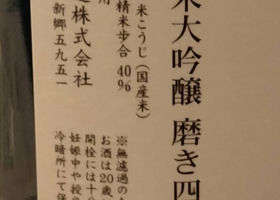 米大吟醸 磨き四
米こうじ(国産米)
精米歩合 40%
用
株式会社
新郷五九五一
※無濾過の
お酒は20歳
妊娠中や授
開栓には十
冷暗所にて保